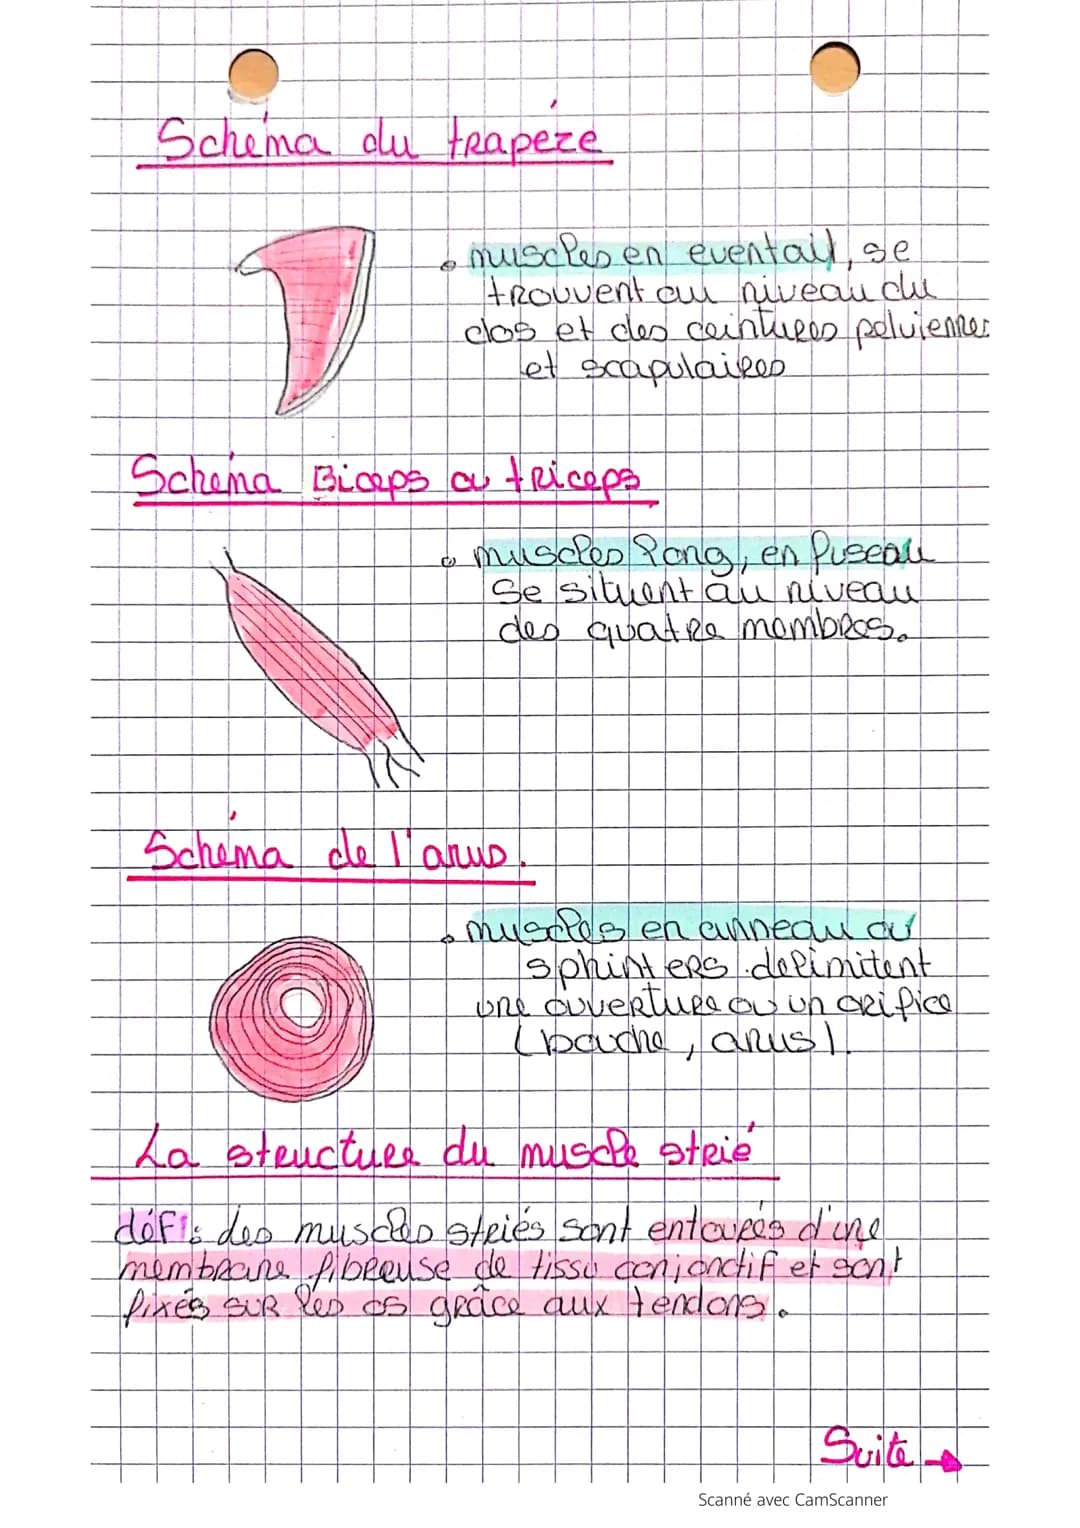 Schéma du trapéze
• muscles en eventail, se
trouvent au niveau du
dos et des ceintures pelviennes
et scapulaires
Schéma Biceps ou triceps
• muscles long, en fuseau
se situent au niveau
des quatre membres.
Schéma de l'anus.
• muscles en anneau ou
sphinters delimitent
une ouverture ou un orifice
(bouche, anus).
La structure du muscle strié
défi : des muscles striés sont entourés d'une
membrane fibreuse de tissu conjonctif et sont
fixés sur les os grâce aux tendons.
Suite →
Scanné avec CamScanner